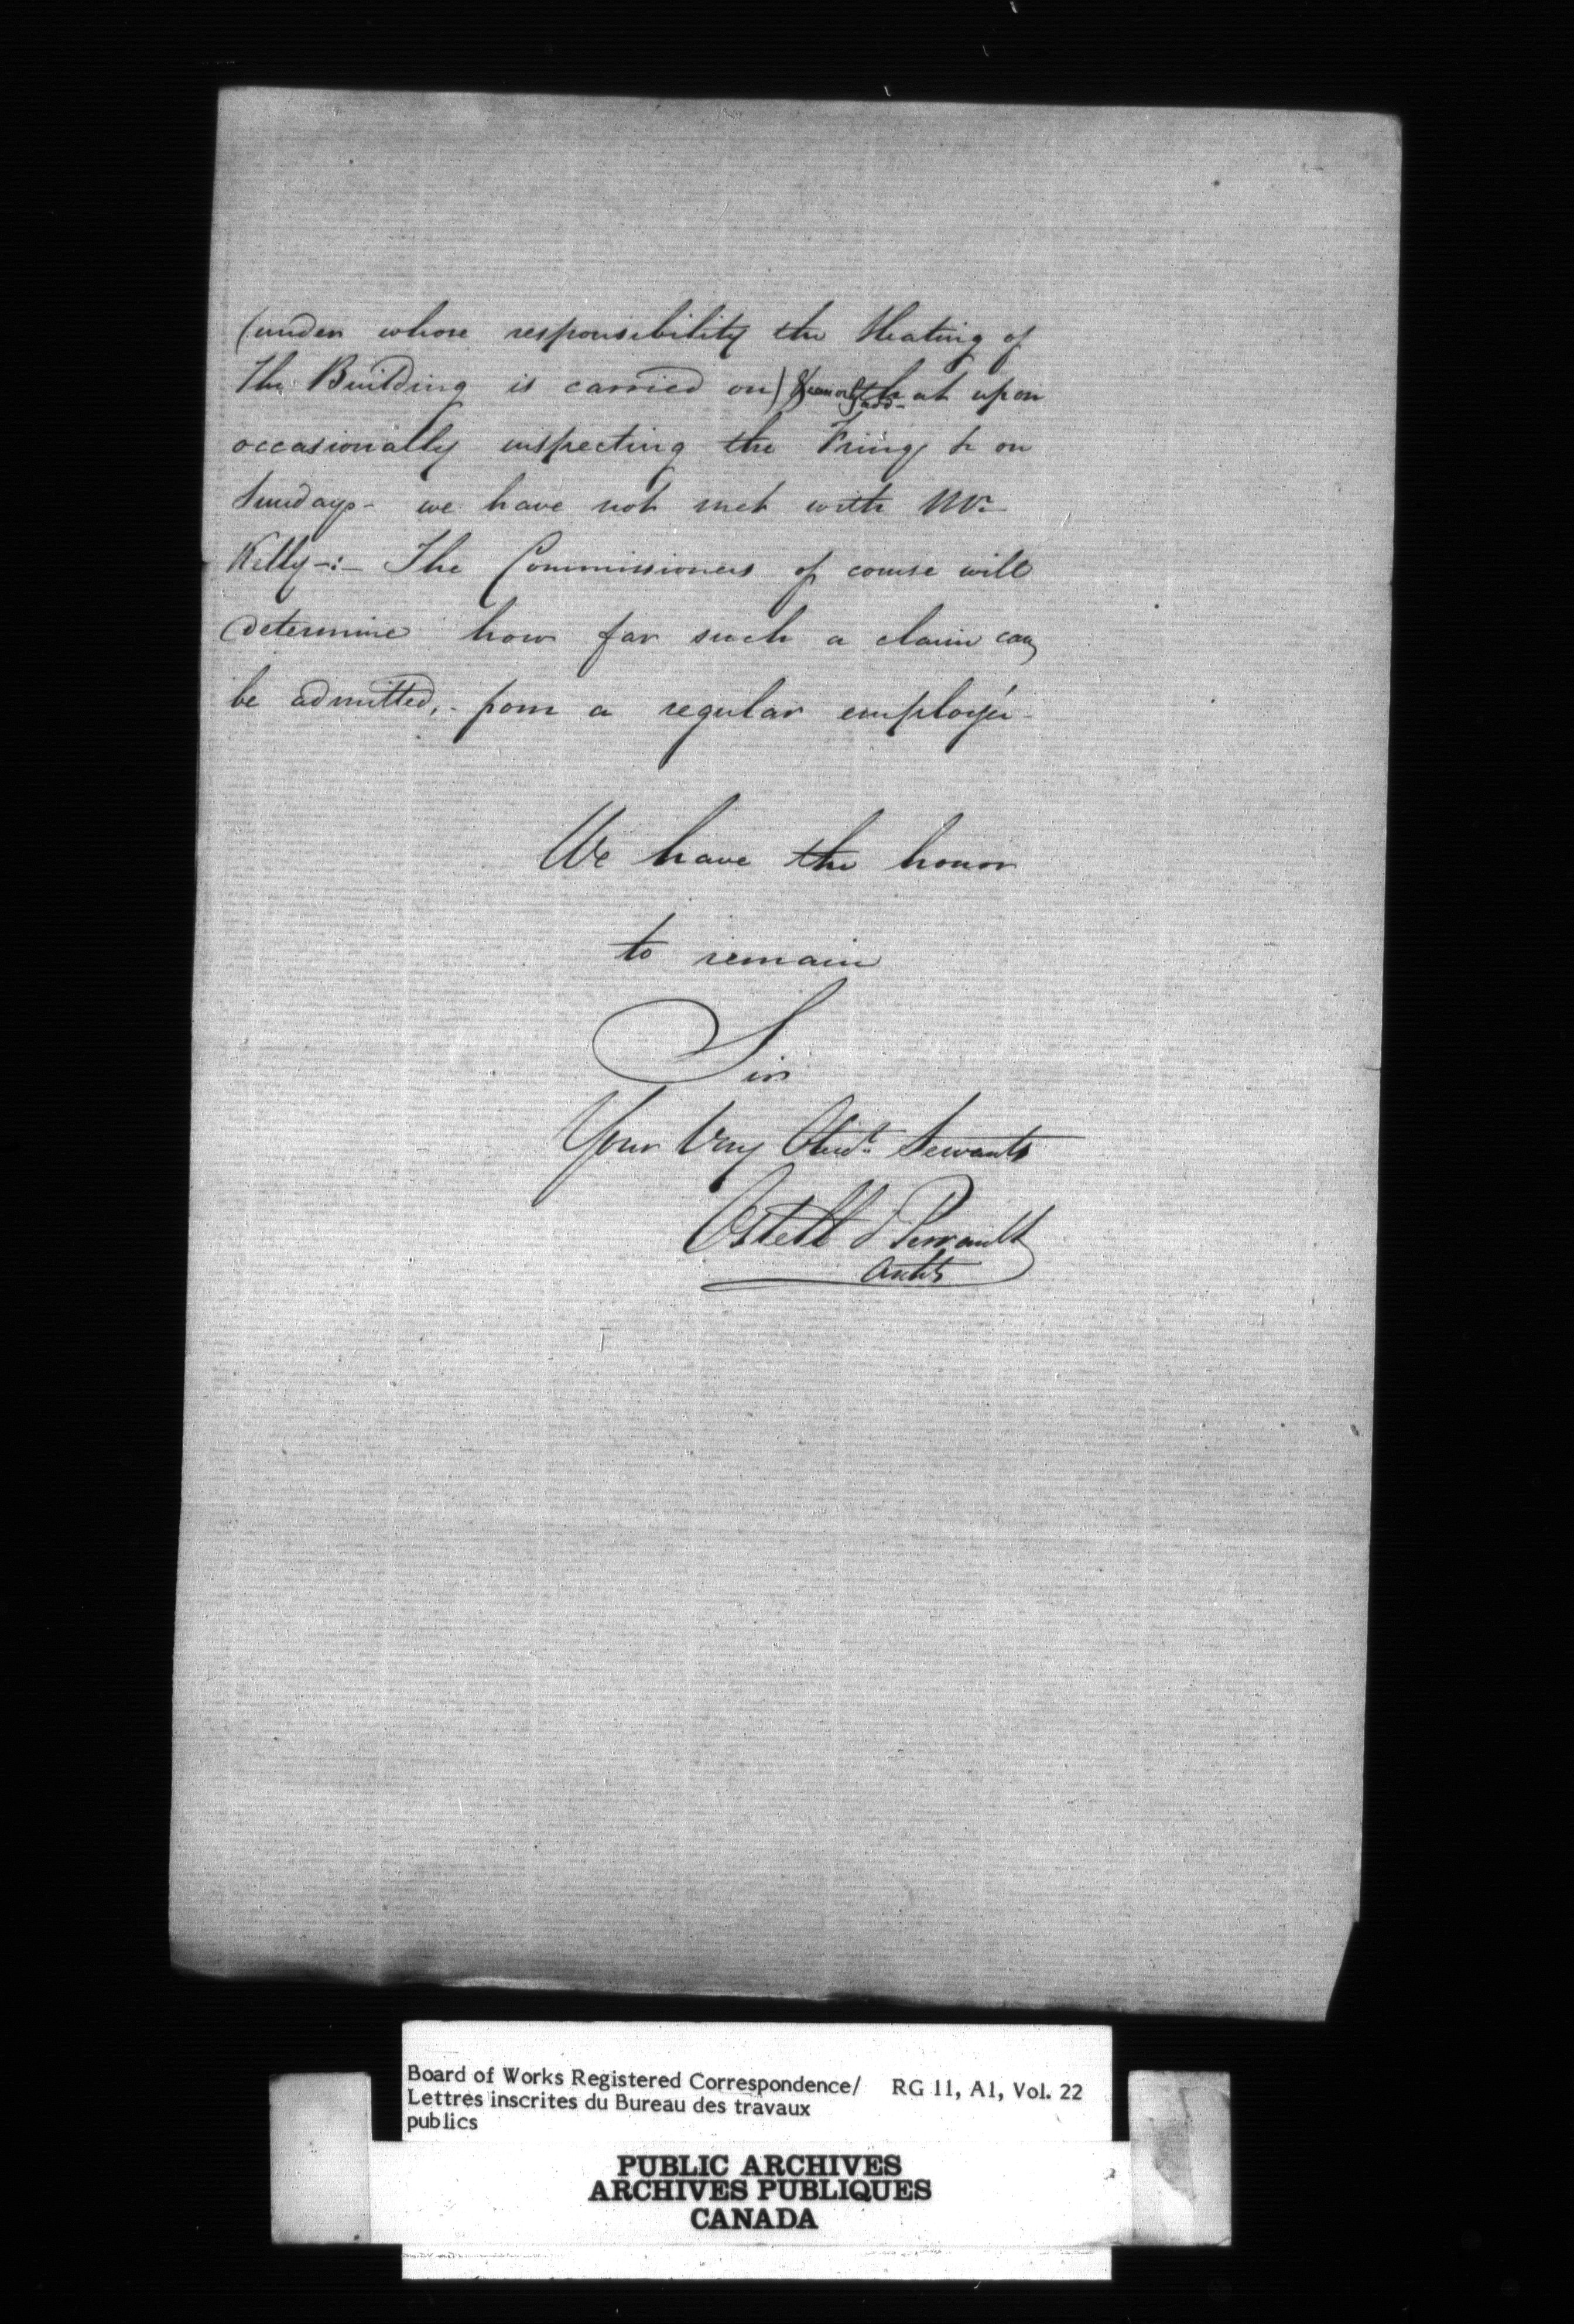 (under whose responsibility the Heating of
The Building is carried on) & can only add- that upon
occasionally inspecting the Firing & on
Sundays- we have not met with Mr.
Kelly-:- The Commissioners of course will
determine how far such a claim can
be admitted,- from a regular employée-
We have the honor
to remain
Sir
Your Very Obedt. Servants
Ostell & Perrault
Archts
Board of Works Registered Correspondence/ RG 11, A1, Vol. 22
Lettres inscrites du Bureau des travaux
publics
PUBLIC ARCHIVES
ARCHIVES PUBLIQUES
CANADA